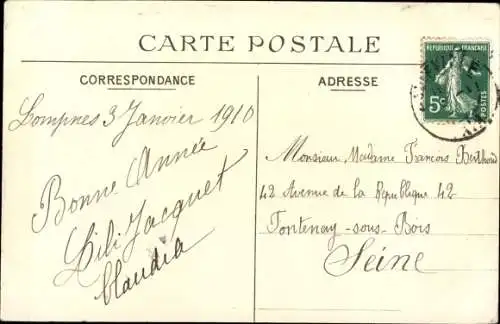 CARTE POSTALE
CORRESPONDANCE
ADRESSE
RÉPUBLIQUE FRANÇAISE
5c
POSTES
Lompnes 3 Janvier 1910
Bonne Année
Lili Jacquet
Claudia
Monsieur Madame Francois
42 Avenue de la Republique 42
Fontenay-sous-Bois
Seine